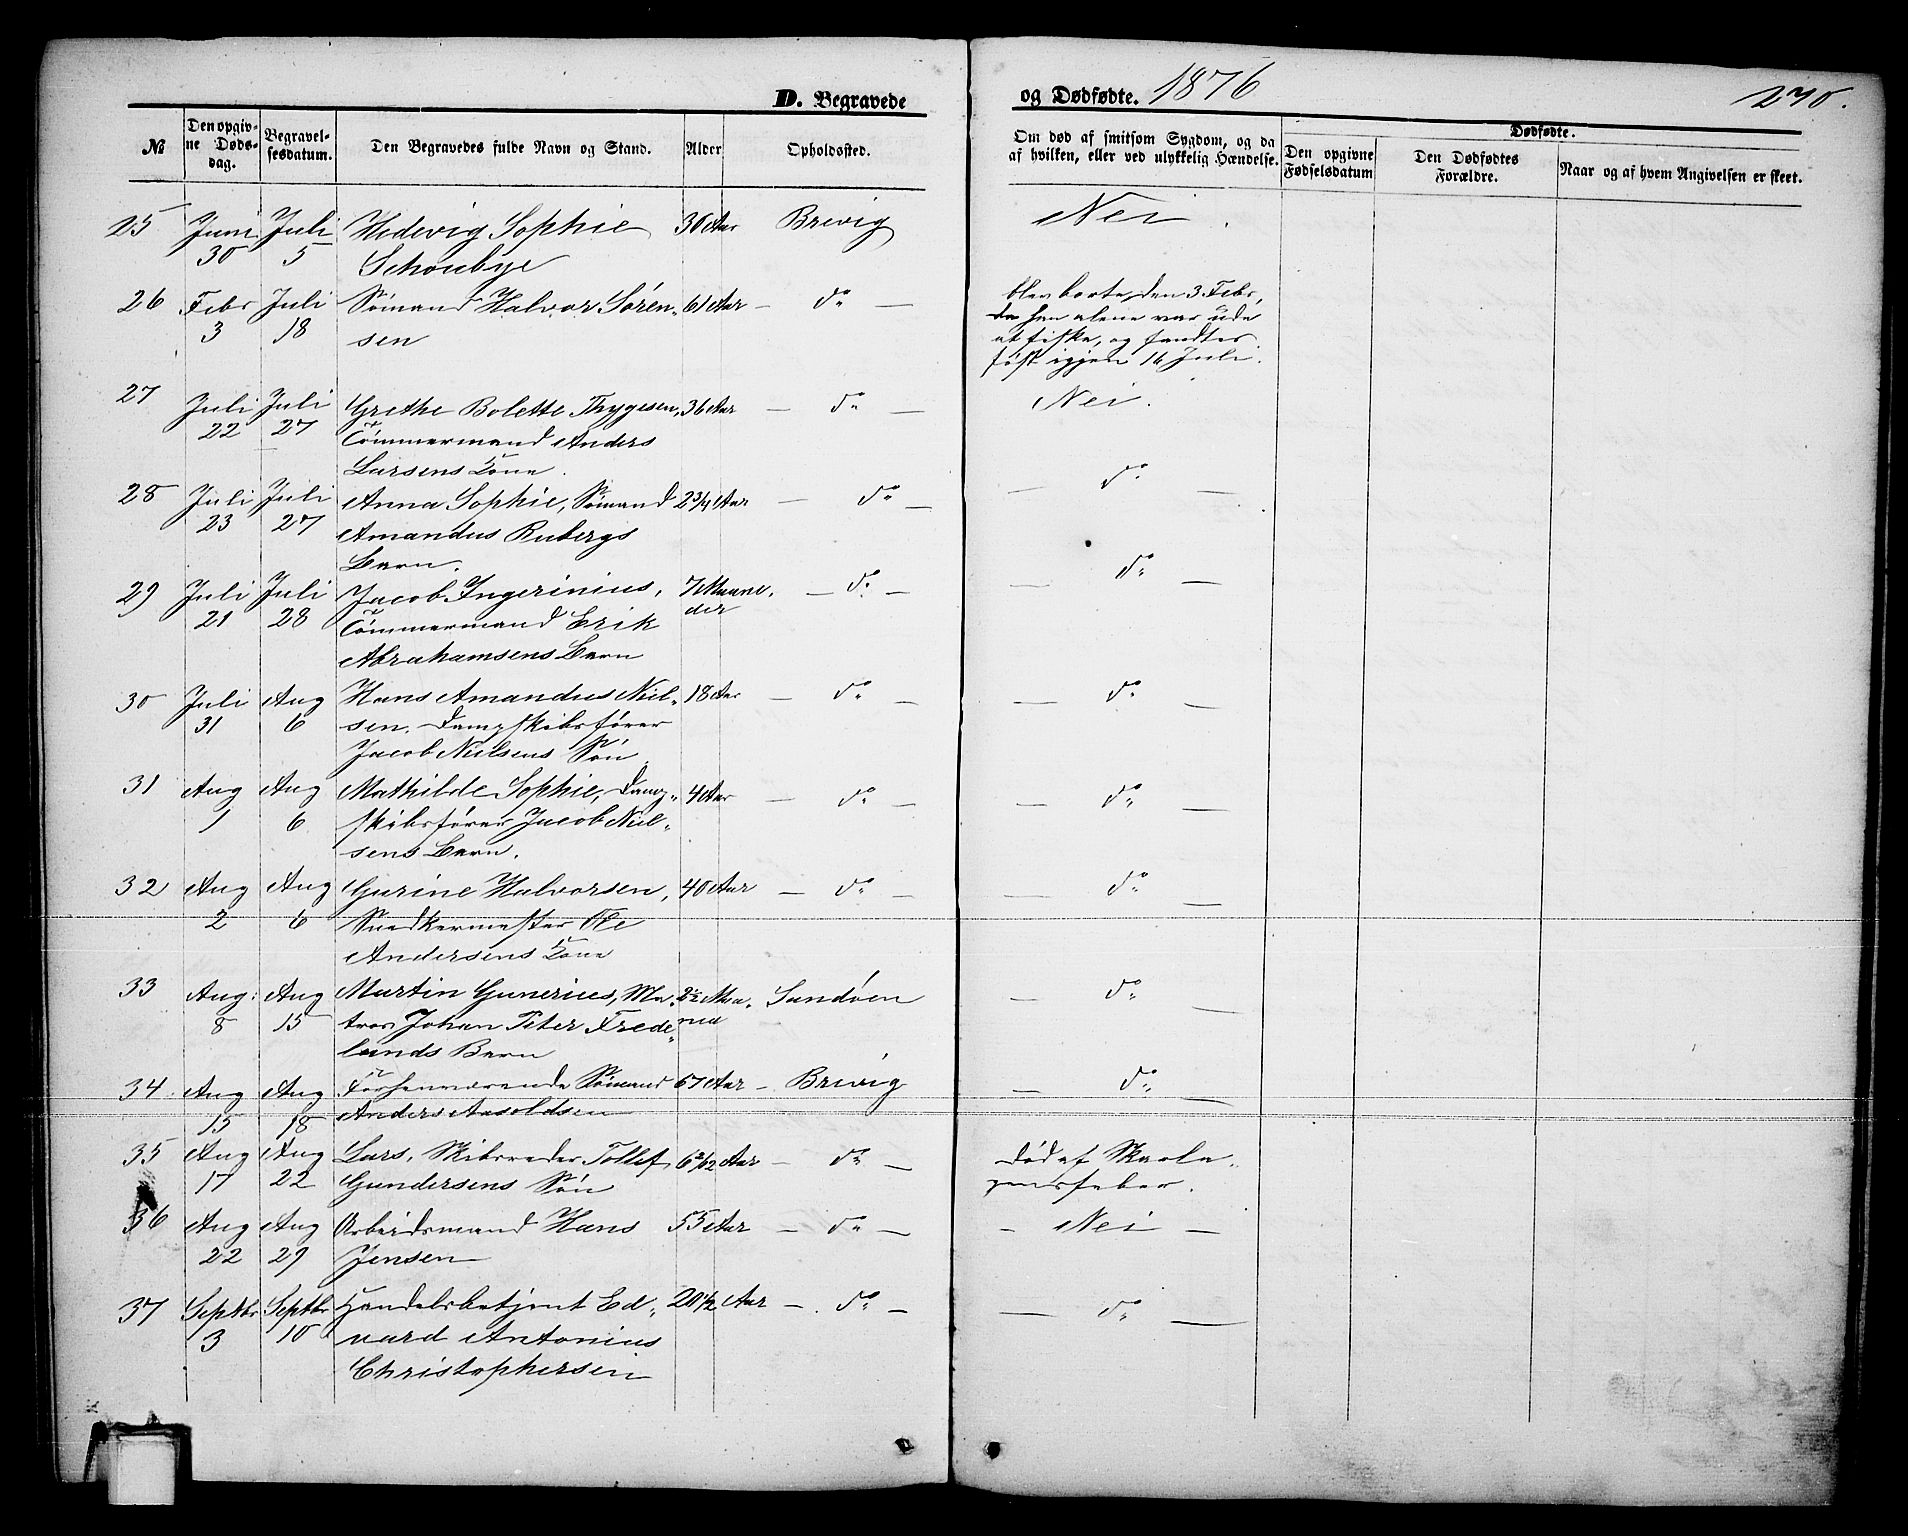 D. Begravede og Dødfødte. 1876 270.
№ Den opgivne Dødsdag. Begravelsesdatum. Den Begravedes fulde Navn og Stand. Alder Opholdssted. Om død af smitsom Sygdom, og da af hvilken, eller ved ulykkelig Hændelse. Dødfødte. Den opgivne Fødselsdatum Den Dødfødtes Forældre. Naar og af hvem Angivelsen er skeet.
25 Juni Juli Hedevig Sophie 30 Aar Brevig Nei.
30 5 Schoubye
26 Febr Juli Sømand Halvor Søren- 61 Aar — do — blev borte den 3 Febr,
3 18 sen da han alene var ude
at fiske, og fandtes
føst igjen 16 Juli.
27 Juli Juli Grethe Bolette Thygesen, 36 Aar — do — Nei.
22 27 Tømmermand Anders
Larsens Kone.
28 Juli Juli Anna Sophie, Sømand 2 3/4 Aar — do — — do —
23 27 Amandus Rubergs
Barn.
29 Juli Juli Jacob Ingerinius, 7 Maane- — do — — do —
21 28 Tømmermand Erik der
Abrahamsens Barn
30 Juli Aug Hans Amandus Niel- 18 Aar — do — — do —
31 6 sen. Dampskibsfører
Jacob Nielsens Søn
31 Aug Aug Mathilde Sophie, Damp- 4 Aar — do — — do —
1 6 skibsfører Jacob Niel-
sens Barn.
32 Aug Aug Gurine Halvorsen, 40 Aar — do — — do —
2 6 Snedkermester Ole
Andersens Kone
33 Aug: Aug Martin Gunerius, Ma- 2 1/2 Maa- Sandøen — do —
8 15 tros Johan Peter Frede- ned
lunds Barn
34 Aug Aug Forhenværende Sømand 67 Aar — Brevig — do —
15 18 Anders Aasoldsen
35 Aug Aug Lars, Skibsreder Tollef 6 5/12 Aar — do — Død af Skarla-
17 22 Gundersens Søn gensfeber.
36 Aug Aug Arbeidsmand Hans 55 Aar — do — — Nei —
22 29 Jensen
37 Septbr Septbr Handelsbetjent Ed- 20 1/2 Aar — do — — do —
3 10 vard Antonius
Christophersen